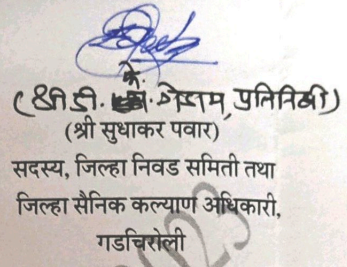 (श्री डी. के. मेश्राम, प्रतिनिधी)
(श्री सुधाकर पवार)
सदस्य, जिल्हा निवड समिती तथा
जिल्हा सैनिक कल्याण अधिकारी,
गडचिरोली
2023